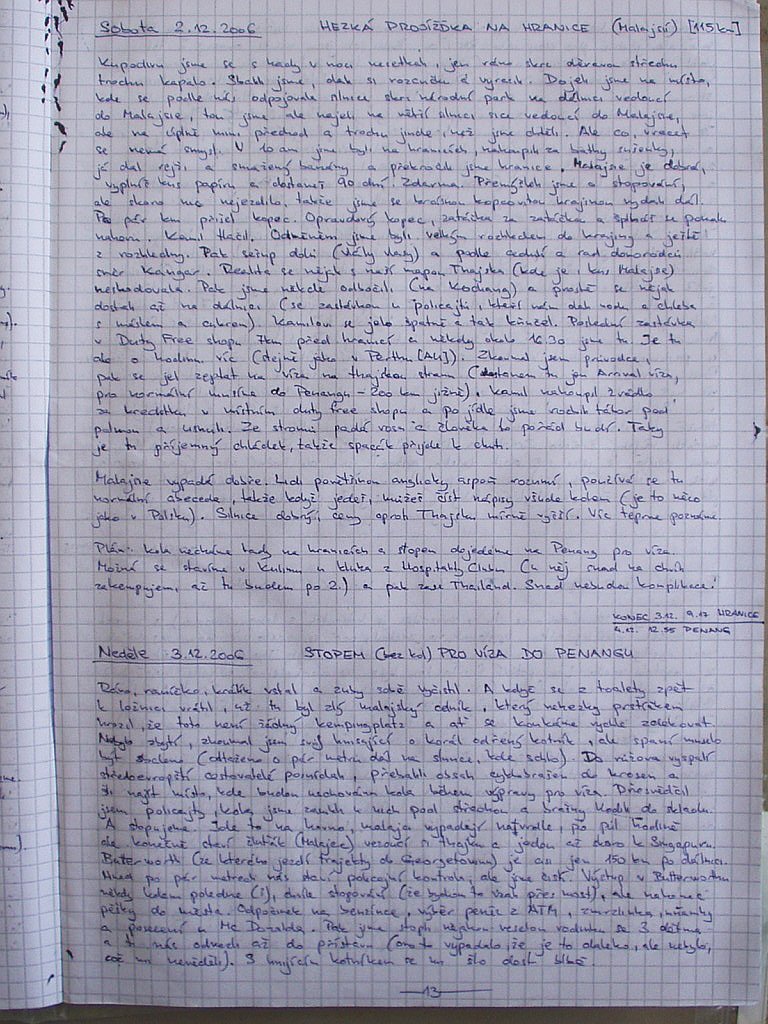 Sobota 2.12.2006 HEZKÁ PROJÍŽĎKA NA HRANICE (Malajsií) [115km]
Kupodivu jsme se s hady v noci nesetkali, jen ráno skrz děravou střechu
trochu kapalo. Sbalili jsme, dali si rozcvičku a vyrazili. Dojeli jsme na místo,
kde se podle nás odpojovala silnice skrz národní park na dálnici vedoucí
do Malajsie, tou jsme ale najeli na větší silnici sice vedoucí do Malajsie,
ale na úplně jiný přechod a trochu jinde, než jsme chtěli. Ale co, vracet
se nemá smysl. V 10 am jsme byli na hranicích, nakoupili za bathy sušenky,
já dal rejži a smažený banány a překročili jsme hranice. Malajsie je dobrá,
vyplníš kus papíru a dostaneš 90 dní. Zdarma. Přemýšleli jsme o stopování,
ale skoro nic nejezdilo, takže jsme se krásnou kopcovitou krajinou vydali dál.
Po pár km přišel kopec. Opravdový kopec, zatáčka za zatáčkou a šplháš se pomalu
nahoru. Kamil tlačil. Odměněni jsme byli velkým rozhledem do krajiny a ještě
z rozhledny. Pak sešup dolů (vlály vlasy) a podle cedulí a rad domorodců
směr Kangar. Realita se nějak s naší mapou Thajska (kde je i kus Malajsie)
neshodovala. Pak jsme někde odbočili (na Kodiang) a prostě se nějak
dostali až na dálnici (se zastávkou u policajtů, kteří nám dali vodu a chleba
s máslem a cukrem). Kamilovi se jelo špatně a tak kňuzel. Poslední zastávka
v Duty Free shopu 7km před hranicí a někdy okolo 16.30 jsme tu. Je tu
ale o hodinu víc (stejně jako v Perthu [AU]). Zkoumal jsem průvodce,
pak se jel zeptat na víza na thajskou stranu (dostanem tu jen Arrival víza,
pro normální musíme do Penangu - 200 km jižně). Kamil nakoupil
za kreditku v místním duty free shopu a po jídle jsme rozbili tábor pod
palmou a usnuli. Ze stromů padá rosa a člověka to pořád budí. Taky
je tu příjemný chládek, takže spacák přijde k chuti.
Malajsie vypadá dobře. Lidi povětšinou anglicky aspoň rozumí, používá se tu
normální abeceda, takže když jedeš, můžeš číst nápisy všude kolem (je to něco
jako v Polsku). Silnice dobrý, ceny oproti Thajsku mírně vyšší. Víc teprve poznáme.
Plán: kola necháme tady na hranicích a stopem dojedeme na Penang pro víza.
Možná se stavíme v Kulimu u kluka z Hospitality Clubu (u něj snad na chvíli
zakempujem, až tu budem po 2.) a pak zase Thailand. Snad nebudou komplikace!
KONEC 3.12. 9.17 HRANICE
4.12. 12.55 PENANG
Neděle 3.12.2006 STOPEM (bez kol) PRO VÍZA DO PENANGU
Ráno, raníčko, králík vstal a zuby sobě vyčistil. A když se z toalety zpět
k ložnici vrátil, už tu byl zlý malajský odník, který nehezky prstíkem
hrozil, že toto není žádný kempingplatz a ať se koukáme rychle zdekovat
Nebylo zbytí, zkoumal jsem svůj hnisající o korál odřený kotník, ale spaní muselo
být sbaleno (odtaženo o pár metrů dál na slunce, kde schlo). Do růžova vyspalí
středoevropští cestovatelé posnídali, přebalili obsah cyklobrašen do krosen a
šli najít místo, kde budou uschována kola během výpravy pro víza. Přesvědčil
jsem policajty, kola jsme zamkli k nim pod střechou a brašny hodili do skladu.
A stopujeme. Jde to na hovno, malajci vypadají natvrdle, po půl hodině
ale konečně staví žlutík (Malajec) vezoucí si thajku a jedou až skoro k Singapuru.
Butterworth (ze kterého jezdí trajekty do Georgetownu) je asi jen 150 km po dálnici.
Hned po pár metrech nás staví policejní kontrola, ale jsme čistí. Výstup v Butterworthu
někdy kolem poledne (!), chvíle stopování (že bychom to vzali přes most), ale nakonec
pěšky do města. Odpočinek na benzínce, výběr peněz z ATM, zmrzlinka, hranolky
a posezení u Mc Donalda. Pak jsme stopli nějakou veselou rodinku se 3 dětma
a ti nás odvezli až do přístavu (ono to vypadalo, že je to daleko, ale nebylo,
což my nevěděli). S hnijícím kotníkem se mi šlo dost blbě.
13